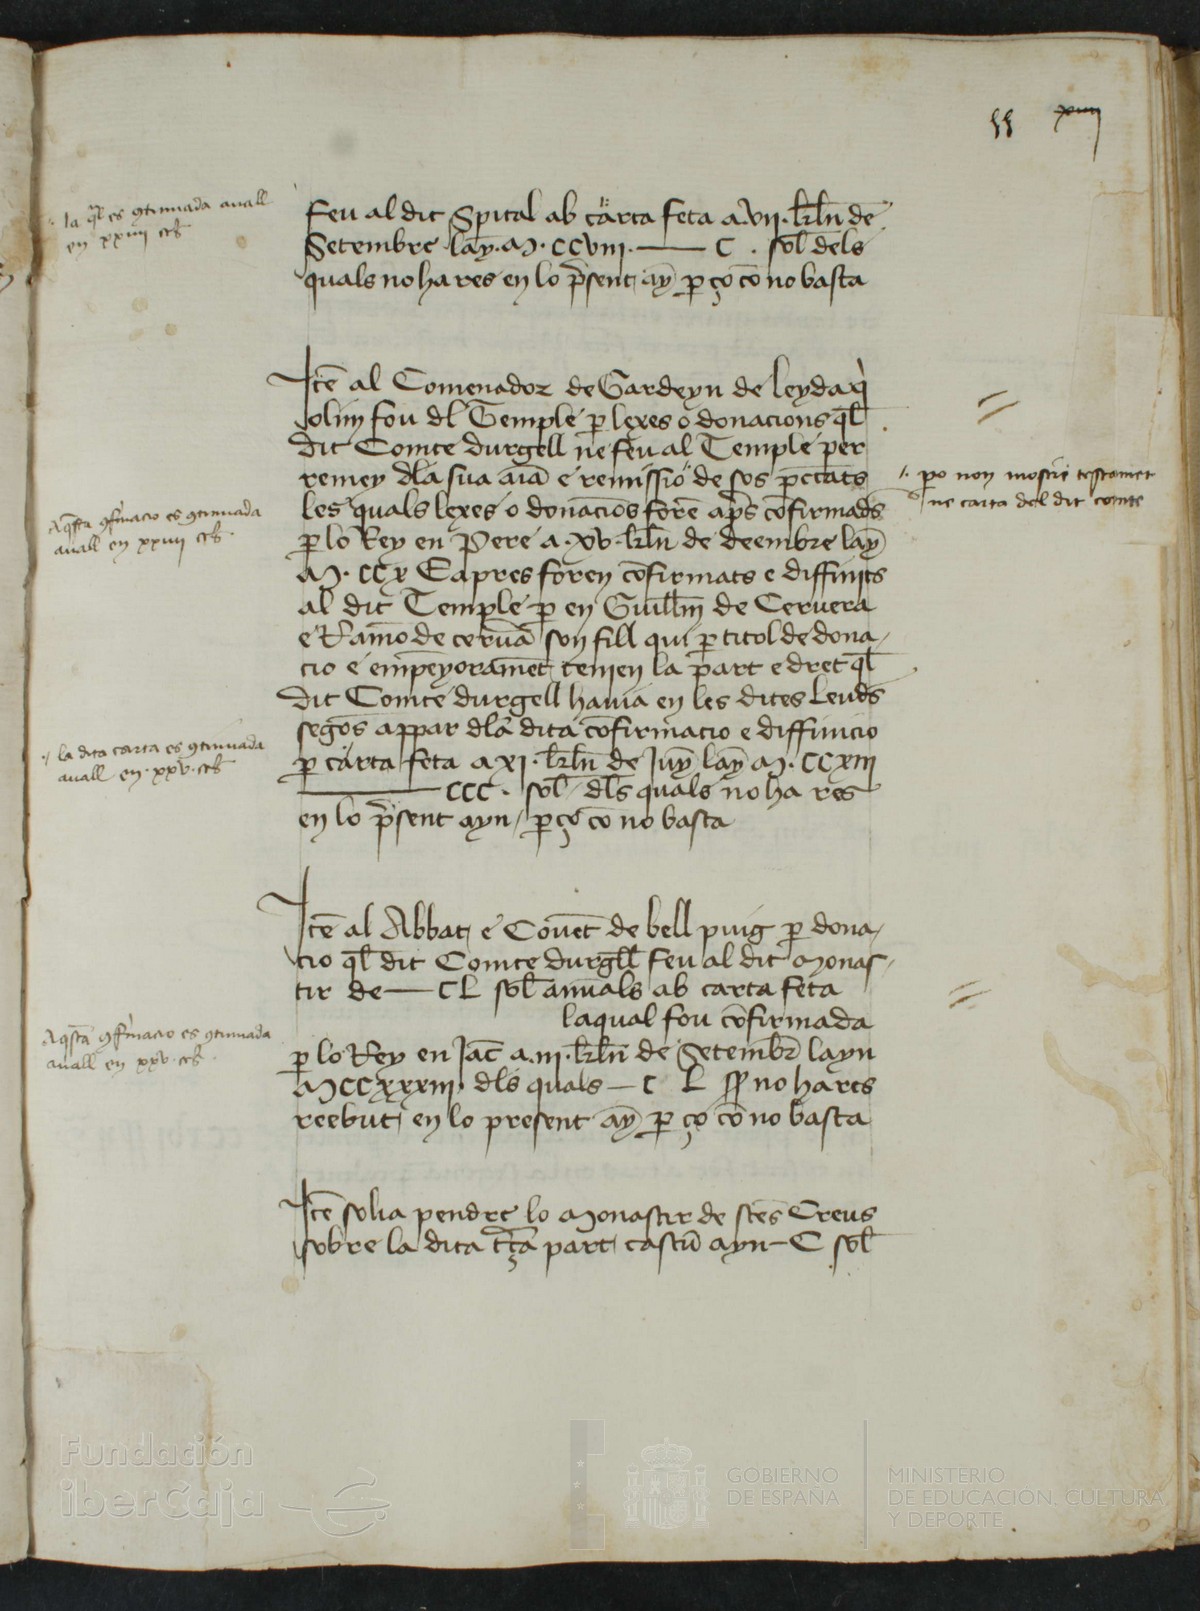 55 xiiij
feu al dit Spital ab carta feta a.vii. kƚn de
Setembre lāy. M. CCViii. —— C. sol dels
quals no ha res en lo p̄sent ay̅ p̱ ço cō no basta
la q̄l es ɔtinuada auall
en xxiiij
Itē al Comenador de Gardeyn de leyda q̇
olim fou dl̄ Temple p̱ lexes o donacions q̄l
dit Comte durgell ne feu al Temple per
remey dl̄a sua aīa e remissio de sos p̄ccats
les quals lexes o donacions forē ap̄s cōfirmads
p̱ lo Rey en Pere a .xv. kƚn de deembre lāy
M. CCX E apres foren cōfirmats e diffinits
al dit Temple p̱ en Guillm̄ de Ceruera
e Ramō de ceru̅a son fill qui p̱ titol de dona/
cio e empenyoramēt tenien la part e dret q̄l
dit Comte durgell hauia en les dites Leuds
segons appar dl̄a dita cōfirmacio e diffinicio
p̱ carta feta a XI. kƚn de Juny lāy M. CCXIII
—— CCC. sol dl̄s quals no ha res
en lo p̄sent ayn / p̱ ço cō no basta
po non mostre testament
ne carta del dit comte
Aq̄sta ɔf̄macio es ɔtinuada
auall en xxiiij
la dita carta es ɔtinuada
auall en .xxv.
Itē al Abbat e Couēt de bell puig p̱ dona/
cio q̄l dit Comte durgell feu al dit Monas/
tir de — CL sol annuals ab carta feta
laqual fou cōfirmada
p̱ lo Rey en Jac̄ a .iii. kƚn de Setembr̄ layn
MCCXXXIII. dl̄s quals — C L ss no ha res
reebut en lo present ay̅ p̱ ço cō no basta
Aq̄sta ɔf̄macio es ɔtinuada
auall en xxv.
Itē solia pendre lo Monastir de stēs Creus
sobre la dita t̄ça part cascū ayn — C sol
Fundación
iberCaja
GOBIERNO
DE ESPAÑA
MINISTERIO
DE EDUCACIÓN, CULTURA
Y DEPORTE